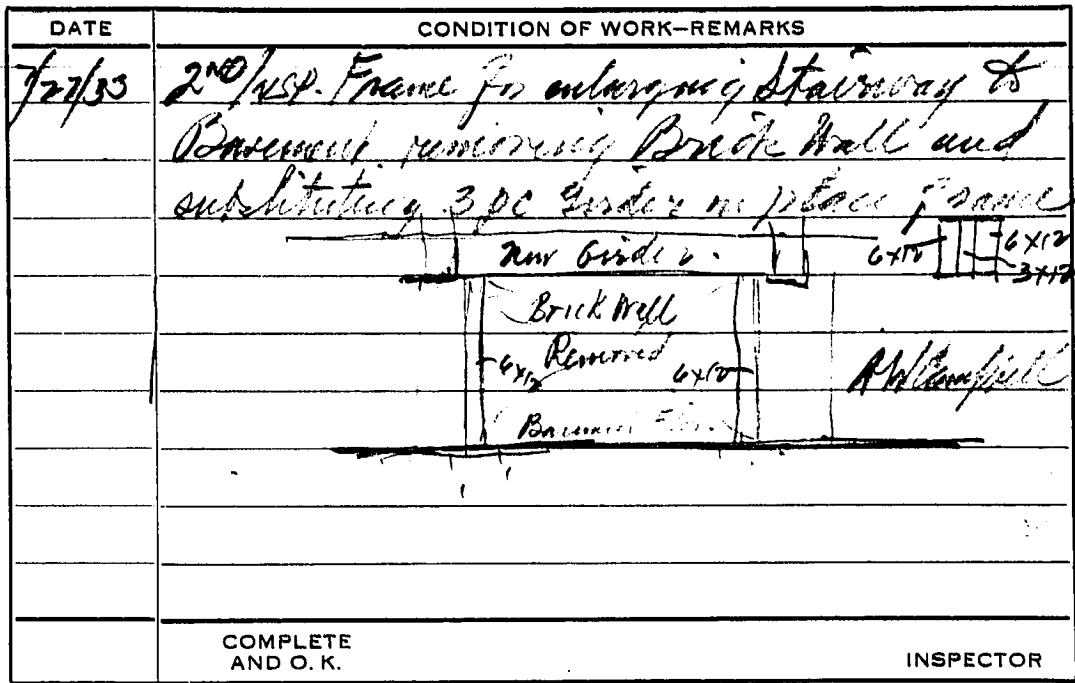 DATE CONDITION OF WORK—REMARKS
7/27/33 2ND Insp. Frame for enlarging Stairway to
Basement removing Brick Wall and
substituting 3 pc Girder in place frame
New Girder. 6x12 6x12
3x12
Brick Wall
Removed
6x12 6x12
R W Campbell
Basement
COMPLETE
AND O. K. INSPECTOR